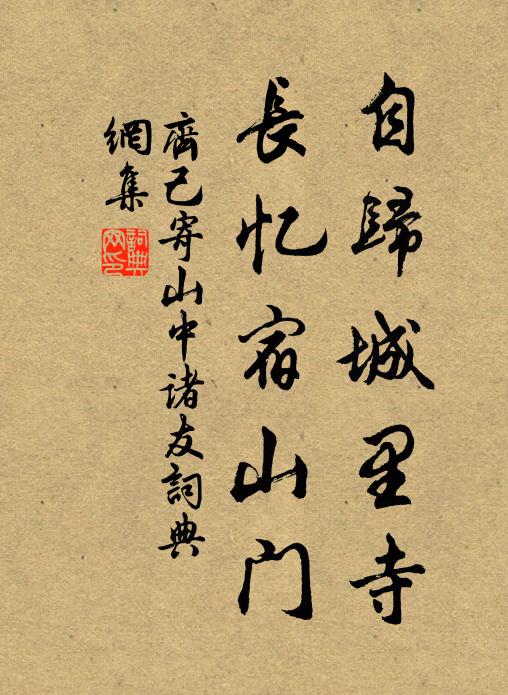 自歸城里寺
長忆宿山门
齊己寄山中诸友詞典
網集
詞典網印